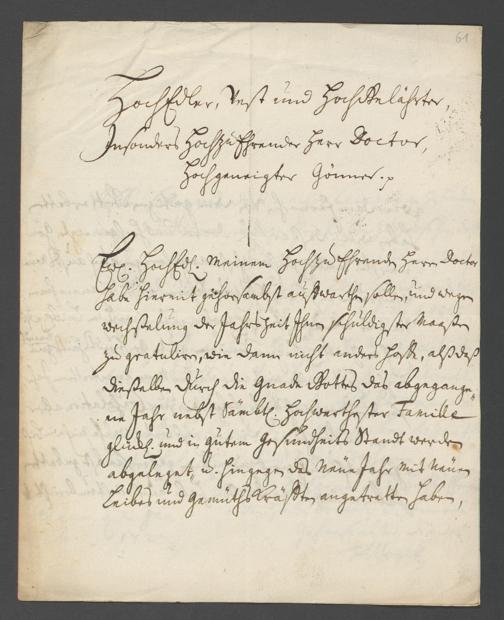 61
HochEdler, Vest und Hochgelährter,
Insonders HochzuEhrender Herr Doctor,
Hochgeneigter Gönner. p
Ew. HochEdl. Meinem HochzuEhrenden Herrn Doctor
habe hiermit gehorsambst aufwarthen sollen, und wegen
wechßelung der Jahrszeit Ihnen schuldigster Maaßen
zu gratuliren, wie dann nicht anders hoffe, alß daß
dieselben durch die Gnade Gottes das abgegange-
ne Jahr nebst Sämbtl. Hochwerthester Famille
glückl. und in gutem Gesundheits Standt werden
abgeleget, u. hingegen das Neüe Jahr mit Neüen
Leibes und Gemüths Kräfften angetretten haben,